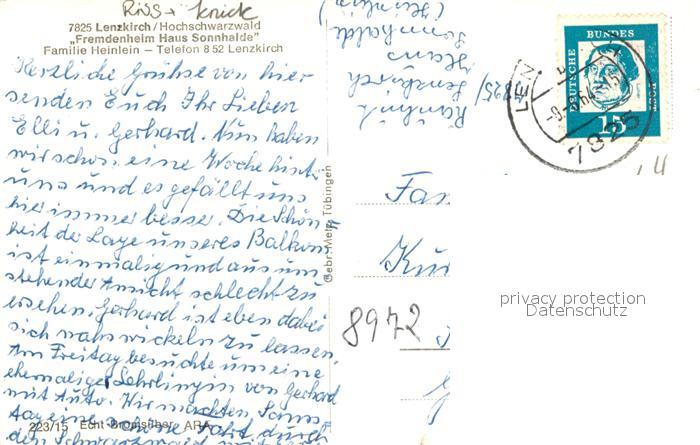 Riss → Knick
7825 Lenzkirch/Hochschwarzwald
„Fremdenheim Haus Sonnhalde"
Familie Heinlein – Telefon 8 52 Lenzkirch
Herzliche Grüße von hier
senden Euch Ihr Lieben
Elli u. Gerhard. Nun haben
wir schon eine Woche hinter
uns und es gefällt uns
hier immer besser. Die Schön-
heit der Lage unseres Balkons
ist einmalig und aus um-
stehender Ansicht schlecht zu
ersehen. Gerhard ist eben dabei
sich nass wickeln zu lassen.
Am Freitag besuchte uns eine
ehemaliger Lehrlingin von Gerhard
mit Auto. Wir machten, Sonn
tag eine schöne Fahrt durch
den Schwarzwald
223/15 Echt Bromsilber ARA
Gebr. Metz, Tübingen
7825/ Lenzkirch
Haus
Sonnhalde
(Heinlein)
DEUTSCHE BUNDESPOST
15
LENZ
7825
Fam
8972
privacy protection
Datenschutz